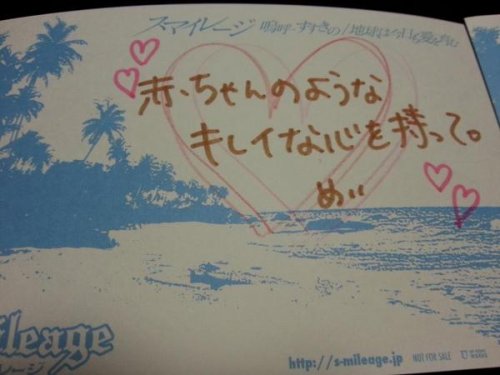 スマイレージ 嗚呼 すすきの / 地球は今日も愛を育む
赤ちゃんのような
キレイな心を持って。
めい
ileage
レージ
http://s-mileage.jp NOT FOR SALE